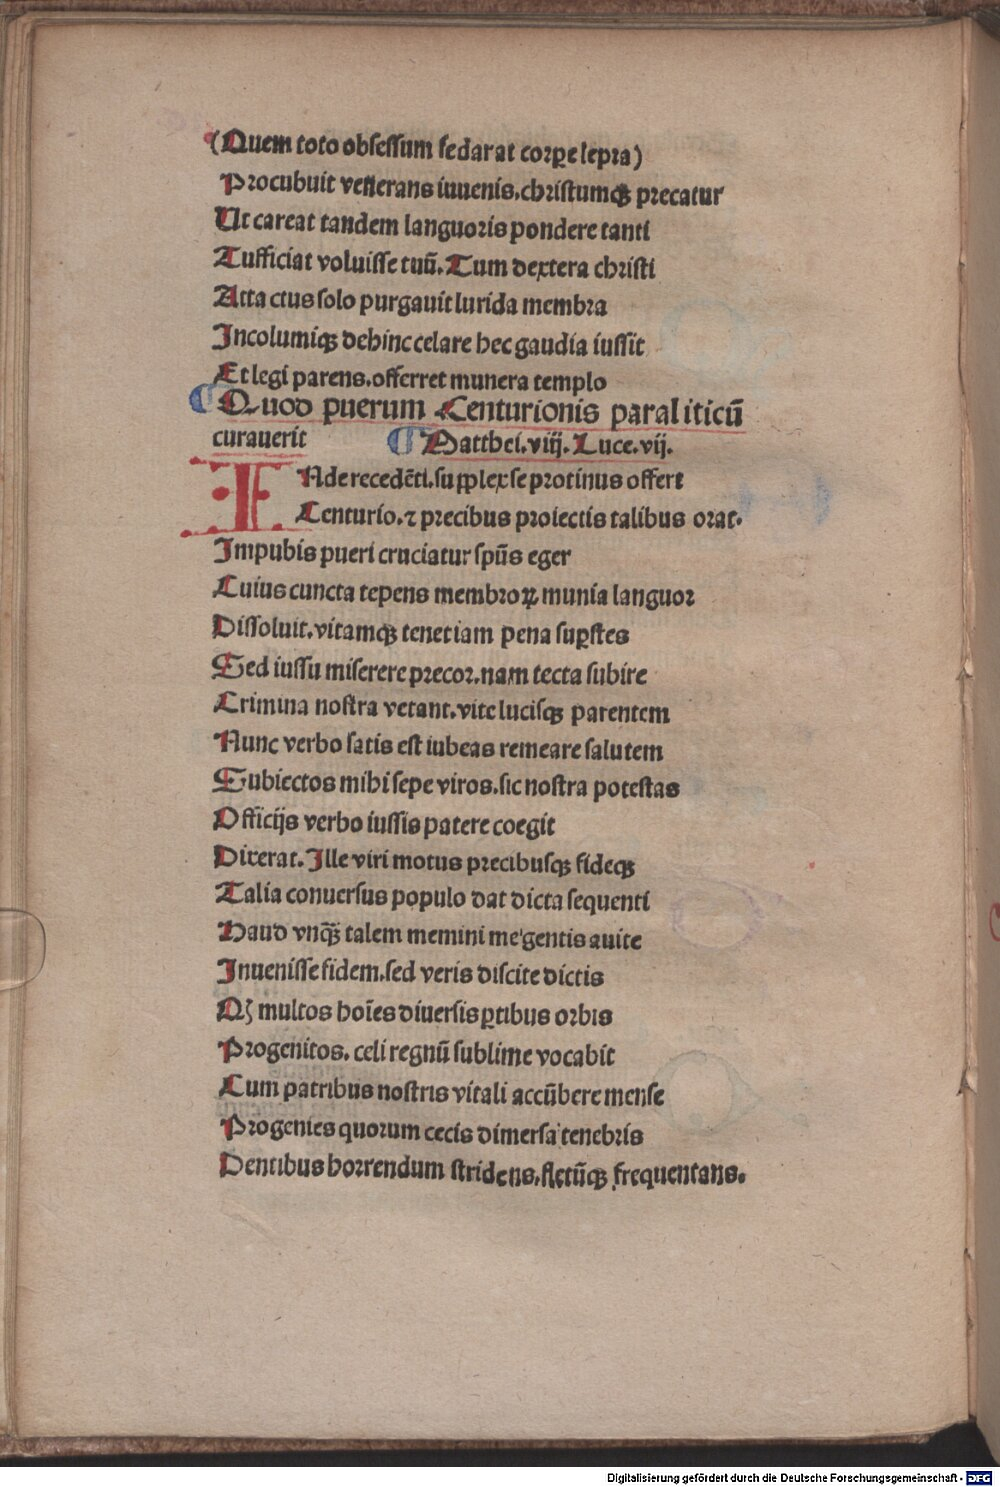 (Quem toto obsessum fedarat corꝑe lepra)
Procubuit venerans iuuenis. christumqꝫ precatur
Ut careat tandem languoris pondere tanti
Tufficiat voluisse tuū. Tum dextera christi
Atta ctus solo purgauit lurida membra
Incolumiqꝫ dehinc celare hec gaudia iussit
Et legi parens. offerret munera templo
Quod puerum Centurionis paraliticū
curauerit Matthei. viij. Luce. vij.
INde recedēti. supplex se protinus offert
Centurio. ⁊ precibus proiectis talibus orat.
Impubis pueri cruciatur spūs eger
Cuius cuncta tepens membroꝝ munia languor
Dissoluit. vitamqꝫ tenet iam pena suꝑstes
Sed iussu miserere precor. nam tecta subire
Crimina nostra vetant. vite lucisqꝫ parentem
Nunc verbo satis est iubeas remeare salutem
Subiectos mihi sepe viros. sic nostra potestas
Officijs verbo iussis patere coegit
Dixerat. Ille viri motus precibusqꝫ fideqꝫ
Talia conuersus populo dat dicta sequenti
Haud vnqꝫ̄ talem memini me gentis auite
Inuenisse fidem. sed veris discite dictis
Qꝫ multos hoīes diuersis ꝑtibus orbis
Progenitos. celi regnū sublime vocabit
Cum patribus nostris vitali accūbere mense
Progenies quorum cecis dimersa tenebris
Dentibus horrendum stridens. fletūqꝫ frequentans.
Digitalisierung gefördert durch die Deutsche Forschungsgemeinschaft - DFG